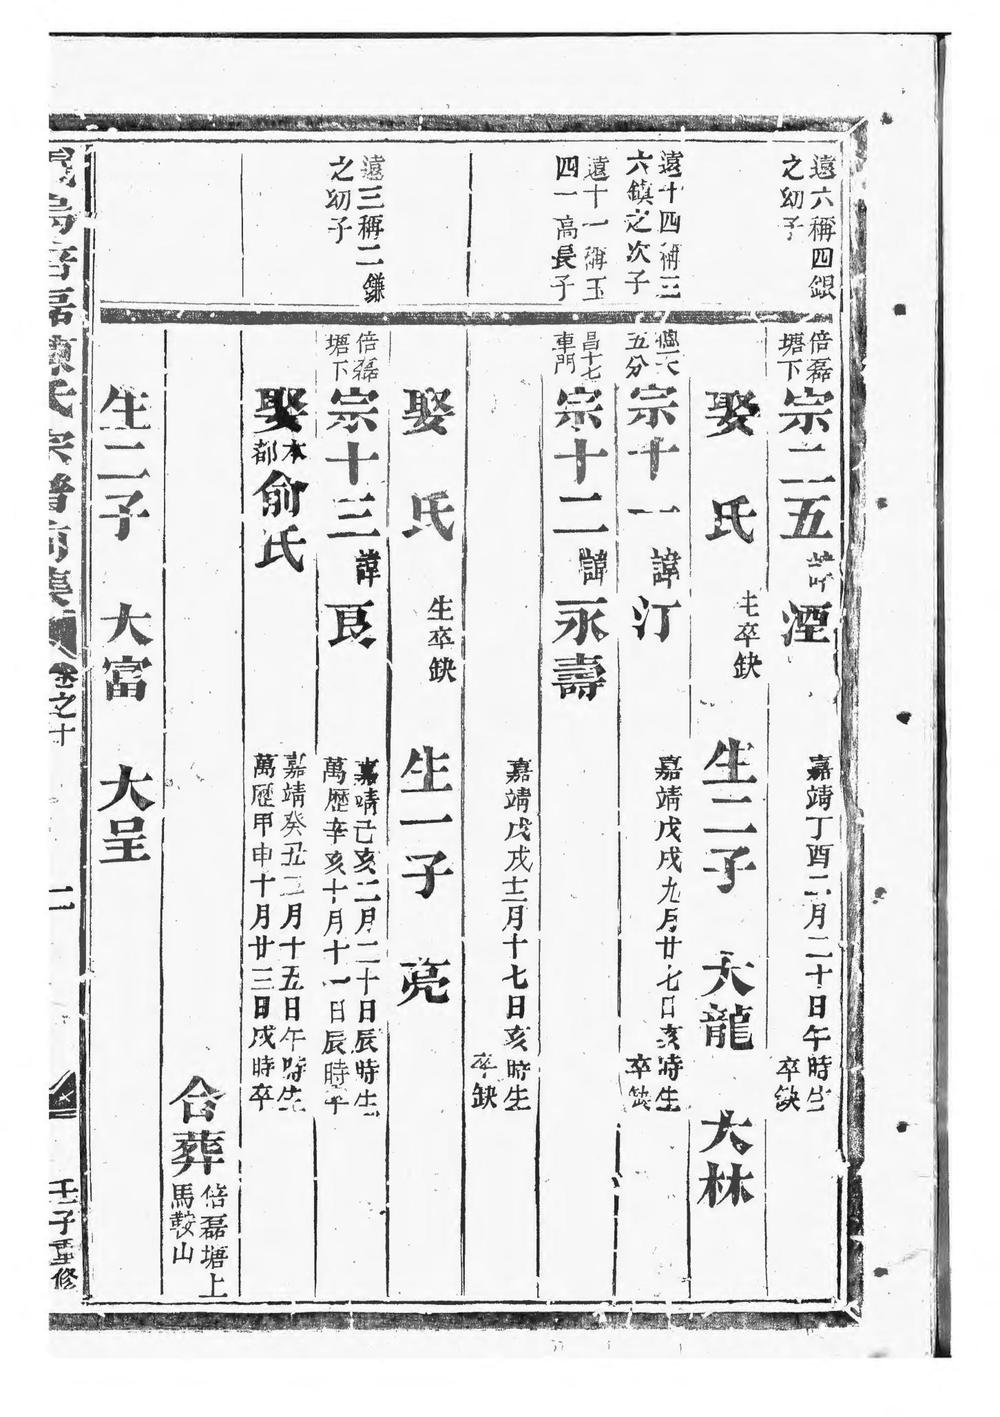 遠六稱四銀
之幼子
倍磊
塘下
宗二五
諱
湮
嘉靖丁酉二月二十日午時生
卒缺
娶 氏
生卒缺
生二子 大龍 大林
遠十四稱三
六鎮之次子
五分
宗十一
諱
汀
嘉靖戊戌九月廿七日亥時生
卒缺
遠十一稱玉
四一高長子
昌十七
車門
宗十二
諱
永壽
嘉靖戊戌十二月十七日亥時生
卒缺
娶 氏
生卒缺
生一子 亮
遠三稱二鎌
之幼子
倍磊
塘下
宗十三
諱
良
嘉靖己亥二月二十日辰時生
萬歷辛亥十月十一日辰時卒
娶
本
都
俞氏
嘉靖癸丑二月十五日午時生
萬歷甲申十月廿三日戌時卒
合葬
倍磊塘上
馬鞍山
生二子 大富 大呈
烏倍磊陳氏宗譜
卷之十
二
壬子重修